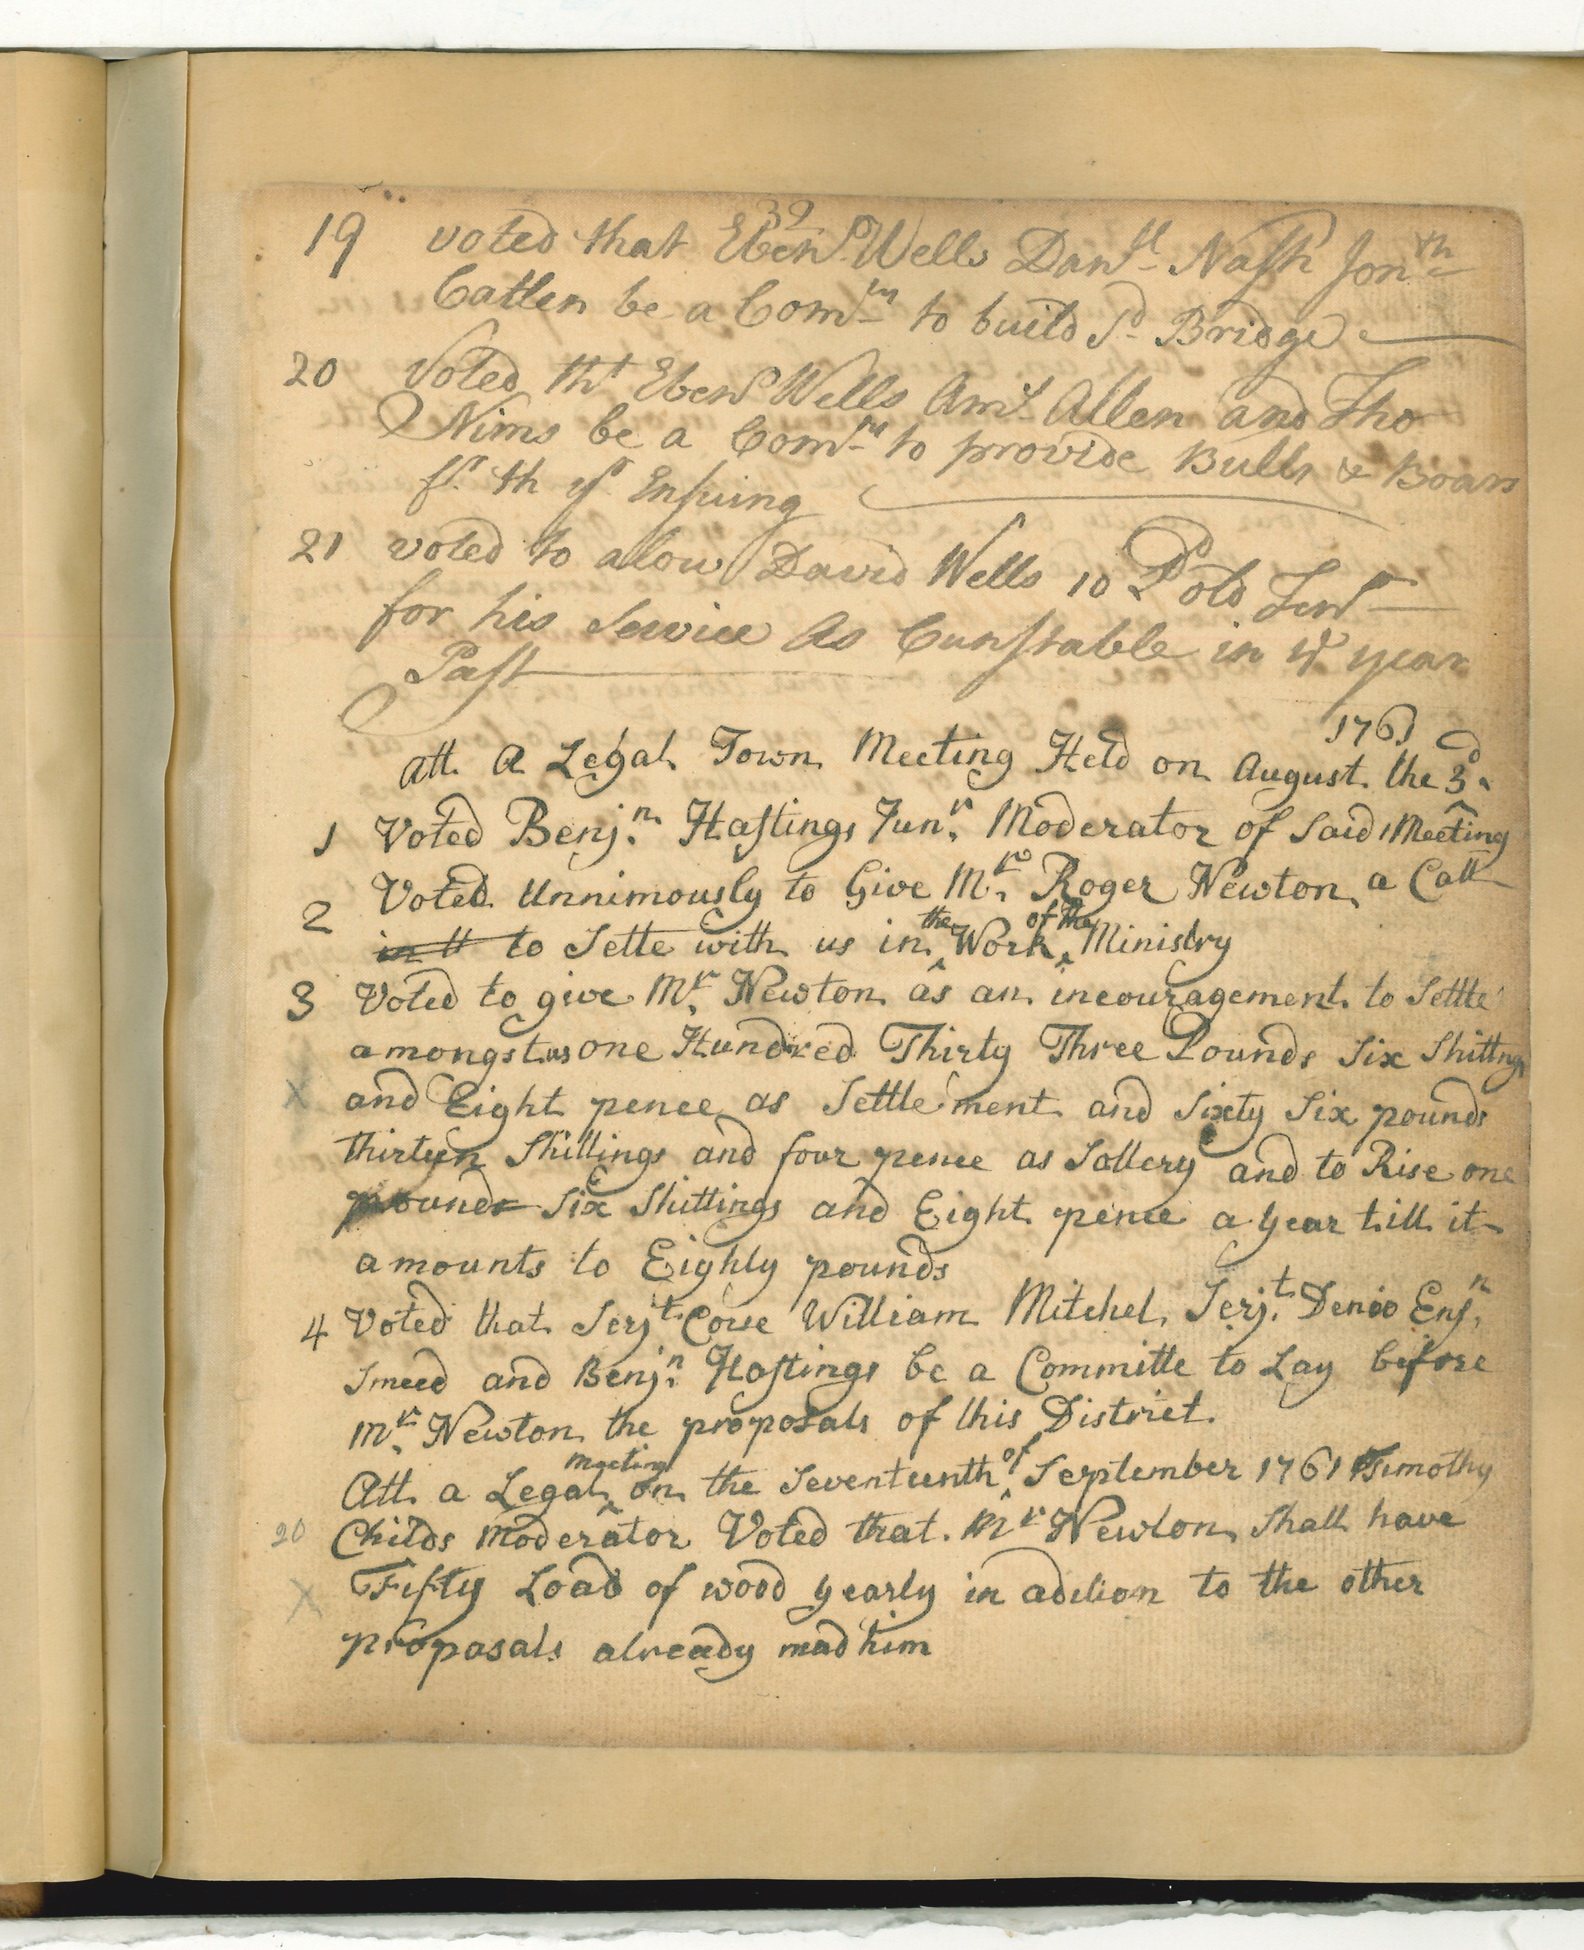 39
19 voted that Ebenr Wells Danll Nash Jonth
Catlen be a Comtt to build sd Bridge
20 Voted tht Ebenr Wells Ams Allen and Tho
Nims be a Comtt to provide Bulls & Boars
fr th yr Ensuing
21 voted to alow David Wells 10 Pd old Tenr
for his Service As Cunstable in ye year
Past
1761
Att A Legal Town Meeting Held on August the 3d
1 Voted Benjn Hastings Junr Moderator of Said Meeting
2 Voted Unnimously to Give Mr Roger Newton a Call
the of the
in tt to Sette with us in Work Ministry
3 Voted to give Mr Newton as an incouragement to Settle
amongst us one Hundred Thirty Three Pounds Six Shillings
X and Eight pence as Settlement and Sixty Six pounds
thirteen Shillings and four pence as Sallery and to Rise one
pound Six Shillings and Eight pence a year till it
amounts to Eighty pounds
4 Voted that Serjt Corse William Mitchel, Serjt Denio Ensn
Smeed and Benjn Hastings be a Committe to Lay before
Mr Newton the proposals of this District.
meeting of
Att a Legal on the Seventeenth September 1761 Timothy
20 Childs Moderator Voted that Mr Newton Shall have
X Fifty Load of wood yearly in adition to the other
proposals already mad him